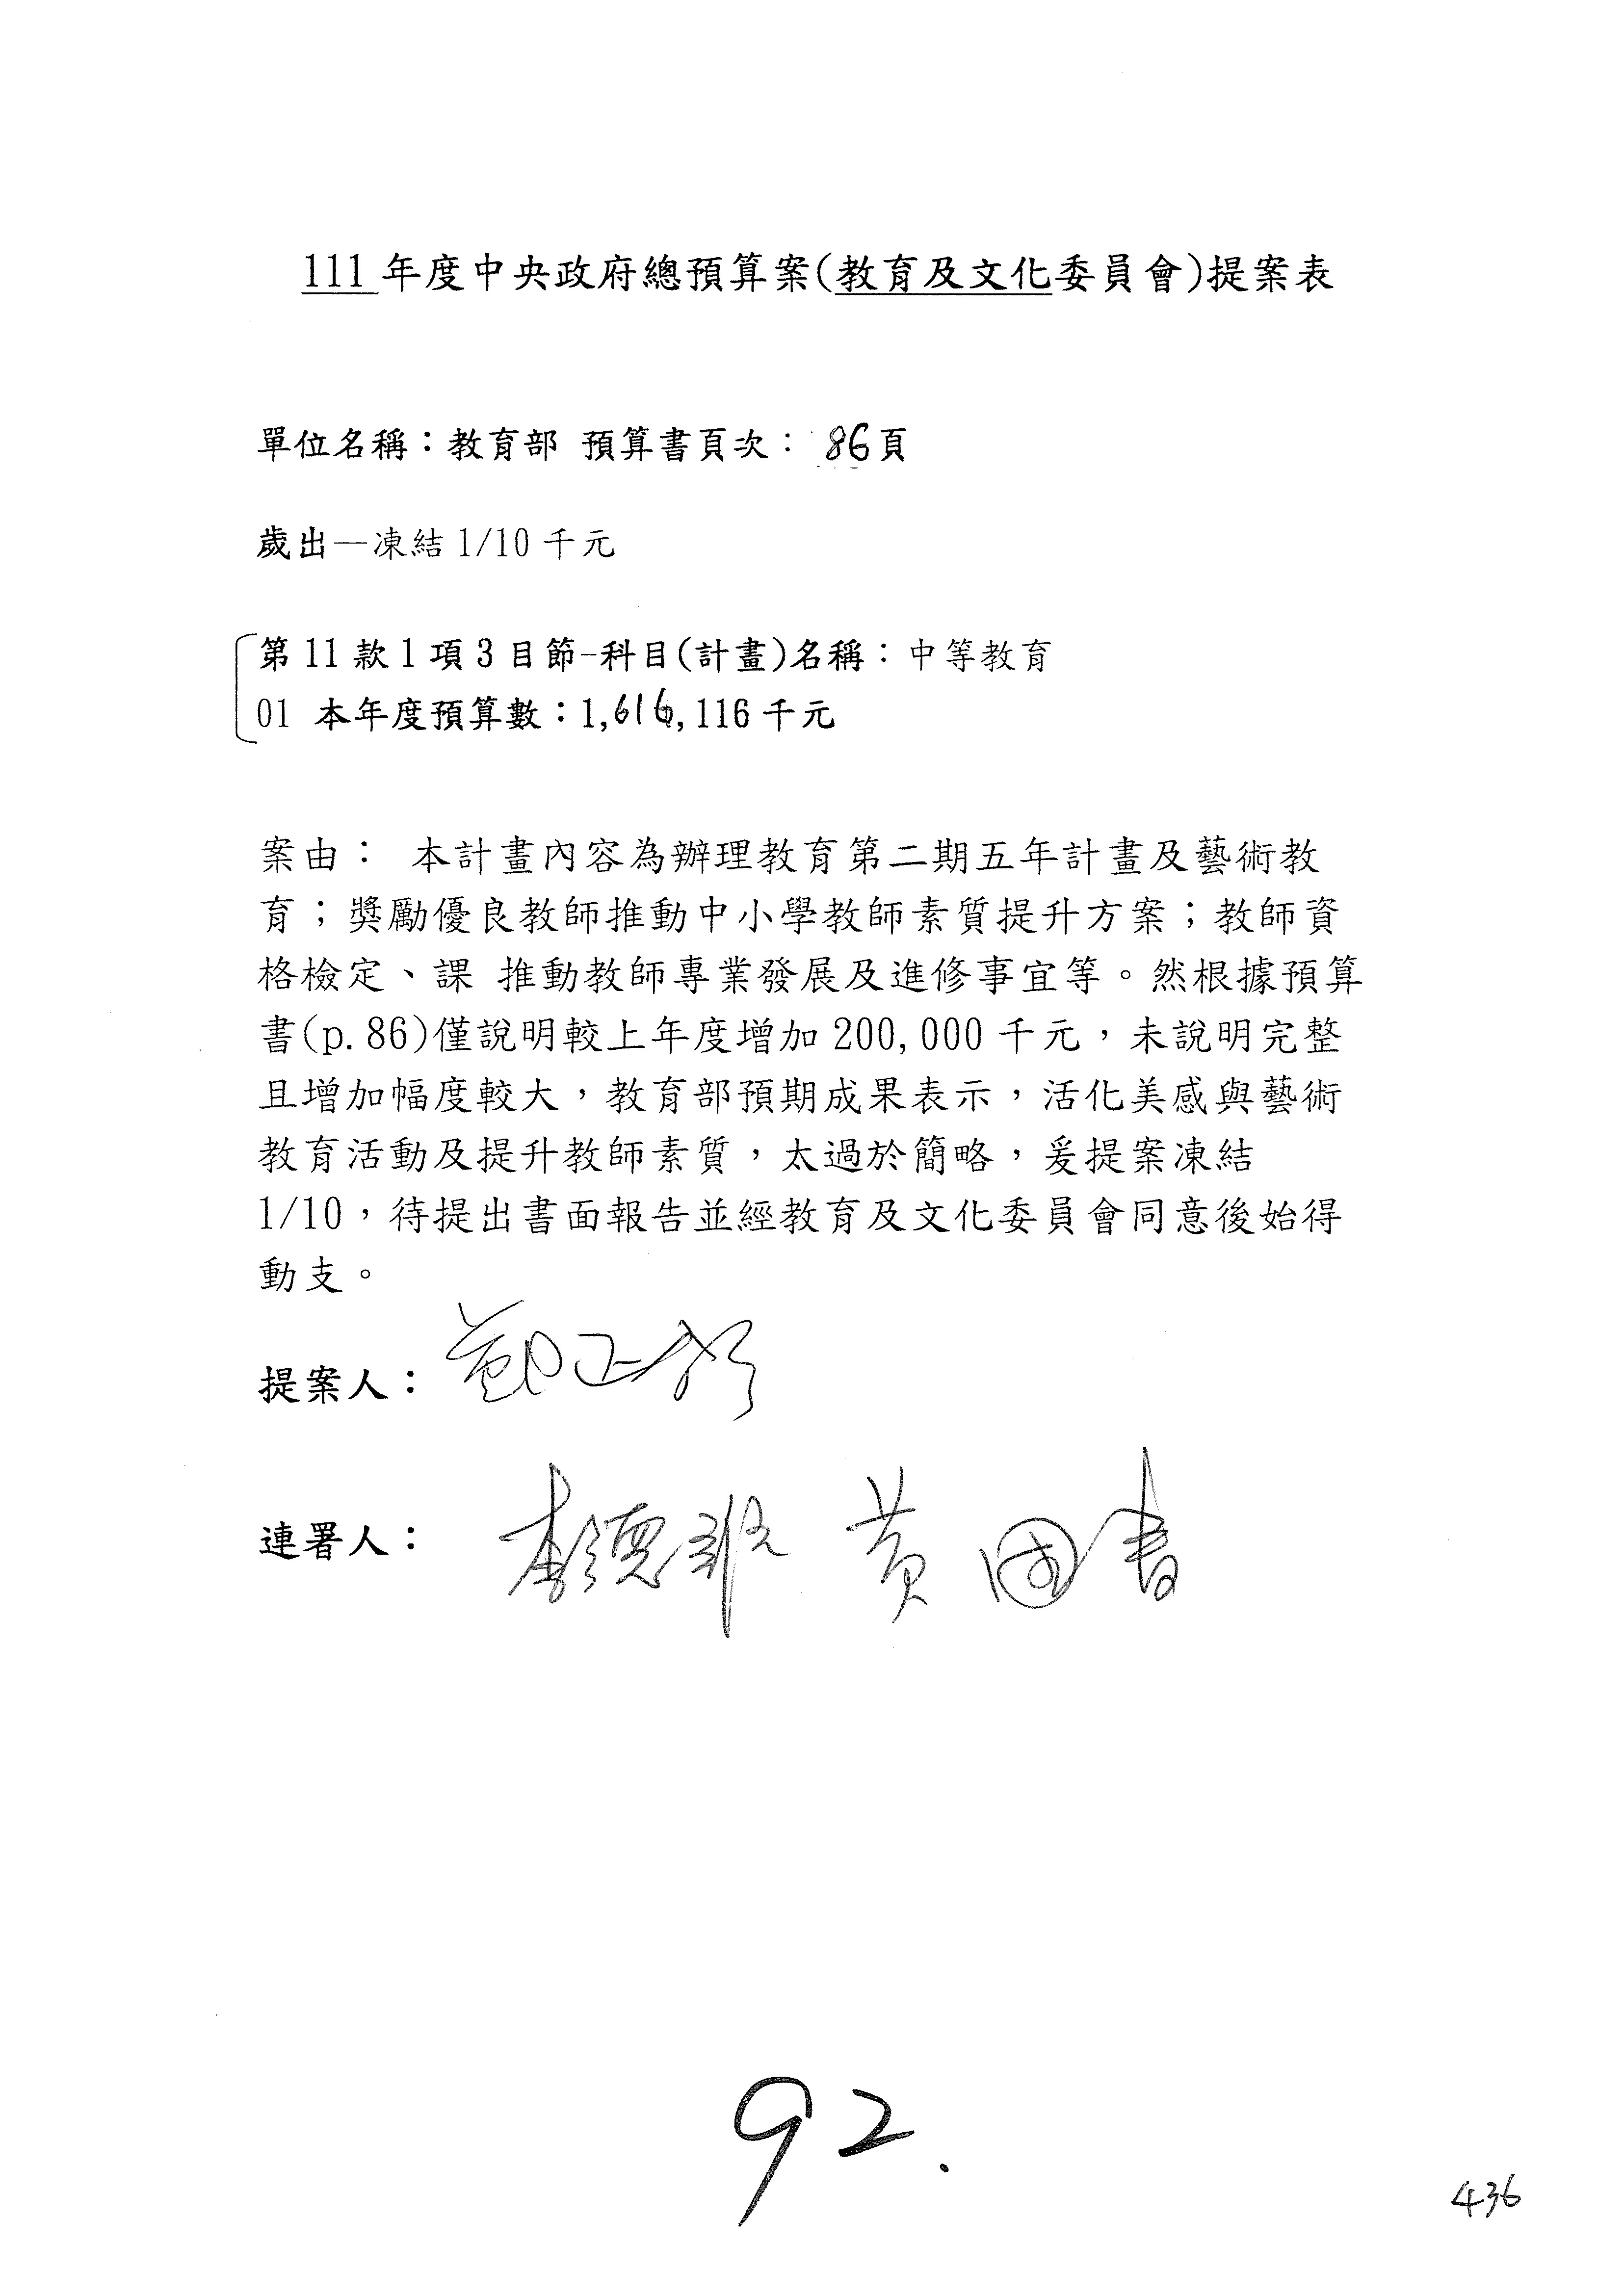 111 年度中央政府總預算案(教育及文化委員會)提案表
單位名稱：教育部 預算書頁次： 86頁
歲出—凍結 1/10 千元
第 11 款 1 項 3 目節-科目(計畫)名稱：中等教育
01 本年度預算數：1,616,116 千元
案由： 本計畫內容為辦理教育第二期五年計畫及藝術教
育；獎勵優良教師推動中小學教師素質提升方案；教師資
格檢定、課 推動教師專業發展及進修事宜等。然根據預算
書(p.86)僅說明較上年度增加 200,000 千元，未說明完整
且增加幅度較大，教育部預期成果表示，活化美感與藝術
教育活動及提升教師素質，太過於簡略，爰提案凍結
1/10，待提出書面報告並經教育及文化委員會同意後始得
動支。
提案人：
連署人： 黃國書
92.
436